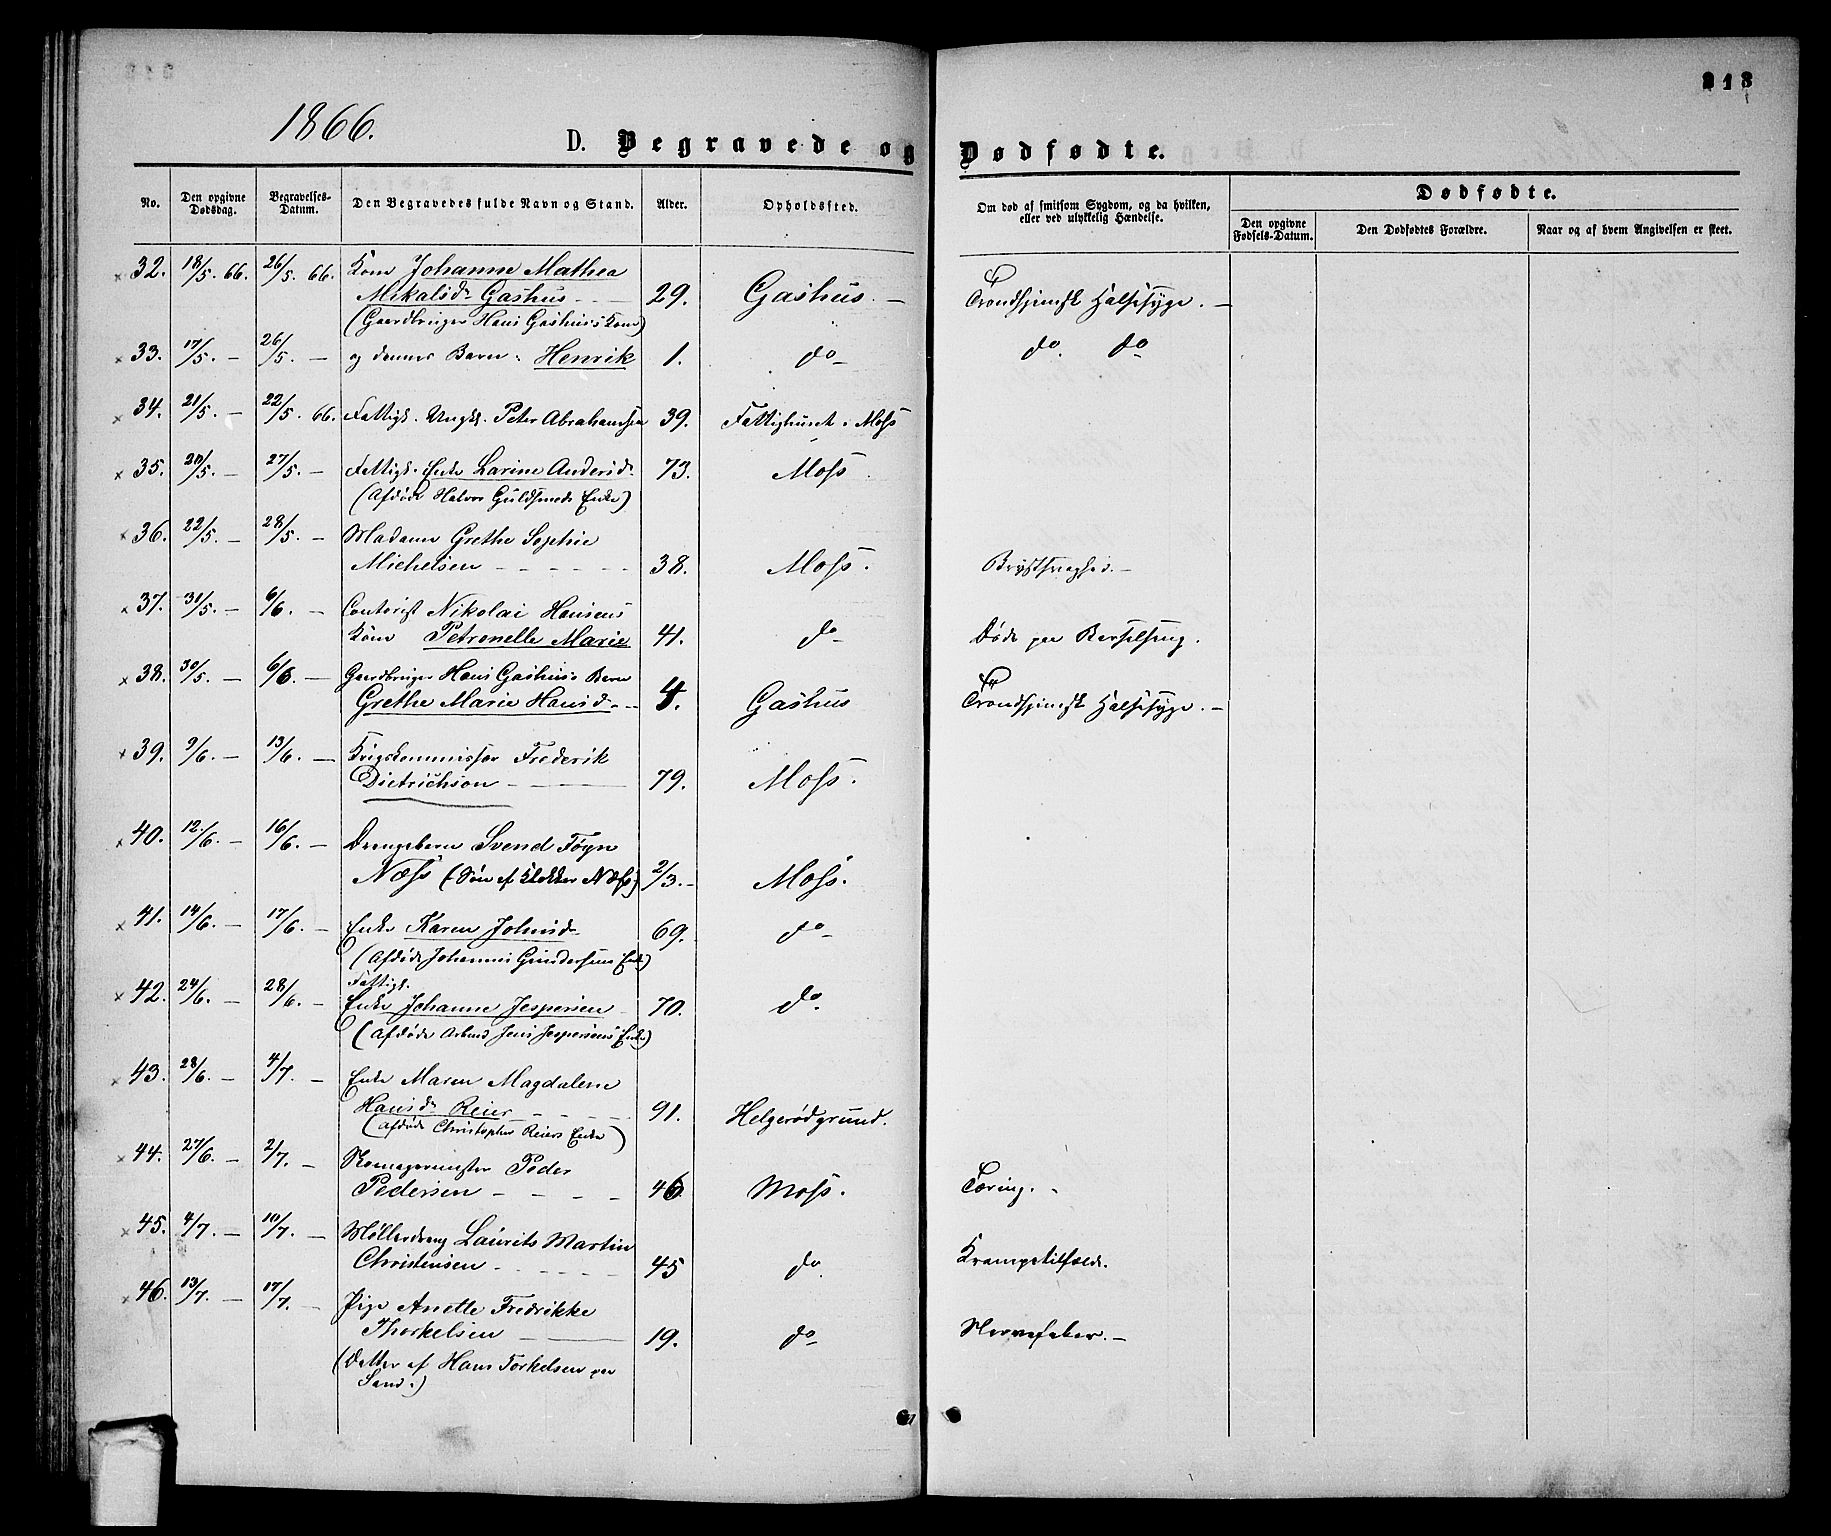 213
1866.
D. Begravede og Dødfødte.
No. Den opgivne Dødsdag. Begravelses-Datum. Den Begravedes fulde Navn og Stand. Alder. Opholdssted. Om død af smitsom Sygdom, og da hvilken, eller ved ulykkelig Hændelse. Dødfødte.
Den opgivne Fødsels-Datum. Den Dødfødtes Forældre. Naar og af hvem Angivelsen er skeet.
32. 18/5. 66. 26/5. 66. Kone Johanne Mathea
Mikalsdr Gashus 29. Gashus. Trondhjemsk Halssyge.
(Gaardbruger Hans Gashus's Kone)
33. 17/5. — 26/5. — og dennes Barn Henrik 1. do do do
34. 21/5. — 22/5. 66. Fattigl. Ungk. Peter Abrahamsen 39. Fattighuset i Moss
35. 20/5. — 27/5. — Fattigl. Enke Larine Andersdr 73. Moss.
(Afdøde Halvor Guldsmeds Enke)
36. 22/5. — 28/5. — Madame Grethe Sophie
Michelsen 38. Moss. Brystsvaghed.
37. 31/5. — 6/6. — Contorist Nikolai Hansens
Kone Petronelle Marie 41. do Døde paa Barselseng.
38. 30/5. — 6/6. — Gaardbruger Hans Gashus's Barn
Grethe Marie Hansdr 4. Gashus Trondhjemsk Halssyge.
39. 9/6. — 13/6. — Krigskommissær Frederik
Dietrichson 79. Moss.
40. 12/6. — 16/6. — Drengebarn Svend Føyn
Næss (Søn af Klokker Næss) 2/3. Moss.
41. 14/6. — 17/6. — Enke Karen Johnsdr 69. do
(Afdøde Johannes Gundersens Enke)
42. 24/6. — 28/6. — Fattigl.
Enke Johanne Jespersen 70. do.
(Afdøde Arbmd Jens Jespersens Enke)
43. 28/6. — 4/7. — Enke Maren Magdalene
Hansdr Reier 91. Helgerødgrund.
(Afdøde Christopher Reiers Enke)
44. 27/6. — 2/7. — Skomagermester Peder
Pedersen 46. Moss. Tæring.
45. 4/7. — 10/7. — Møllerdreng Laurits Martin
Christensen 45 do. Krampetilfælde.
46. 13/7. — 17/7. — Pige Anette Fredrikke
Thorkelsen 19. do Nervefeber.
(Datter af Hans Torkelsen paa
Sand.)